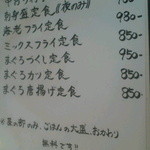 930-
お弁當定食(夜のみ) 980-
海老フライ定食 850-
ミックスフライ定食 850-
まぐろづくし定食 950-
まぐろカツ定食 850-
まぐろ唐揚げ定食 850-
昼の部のみ、ごはんの大盛、おかわり
無料です